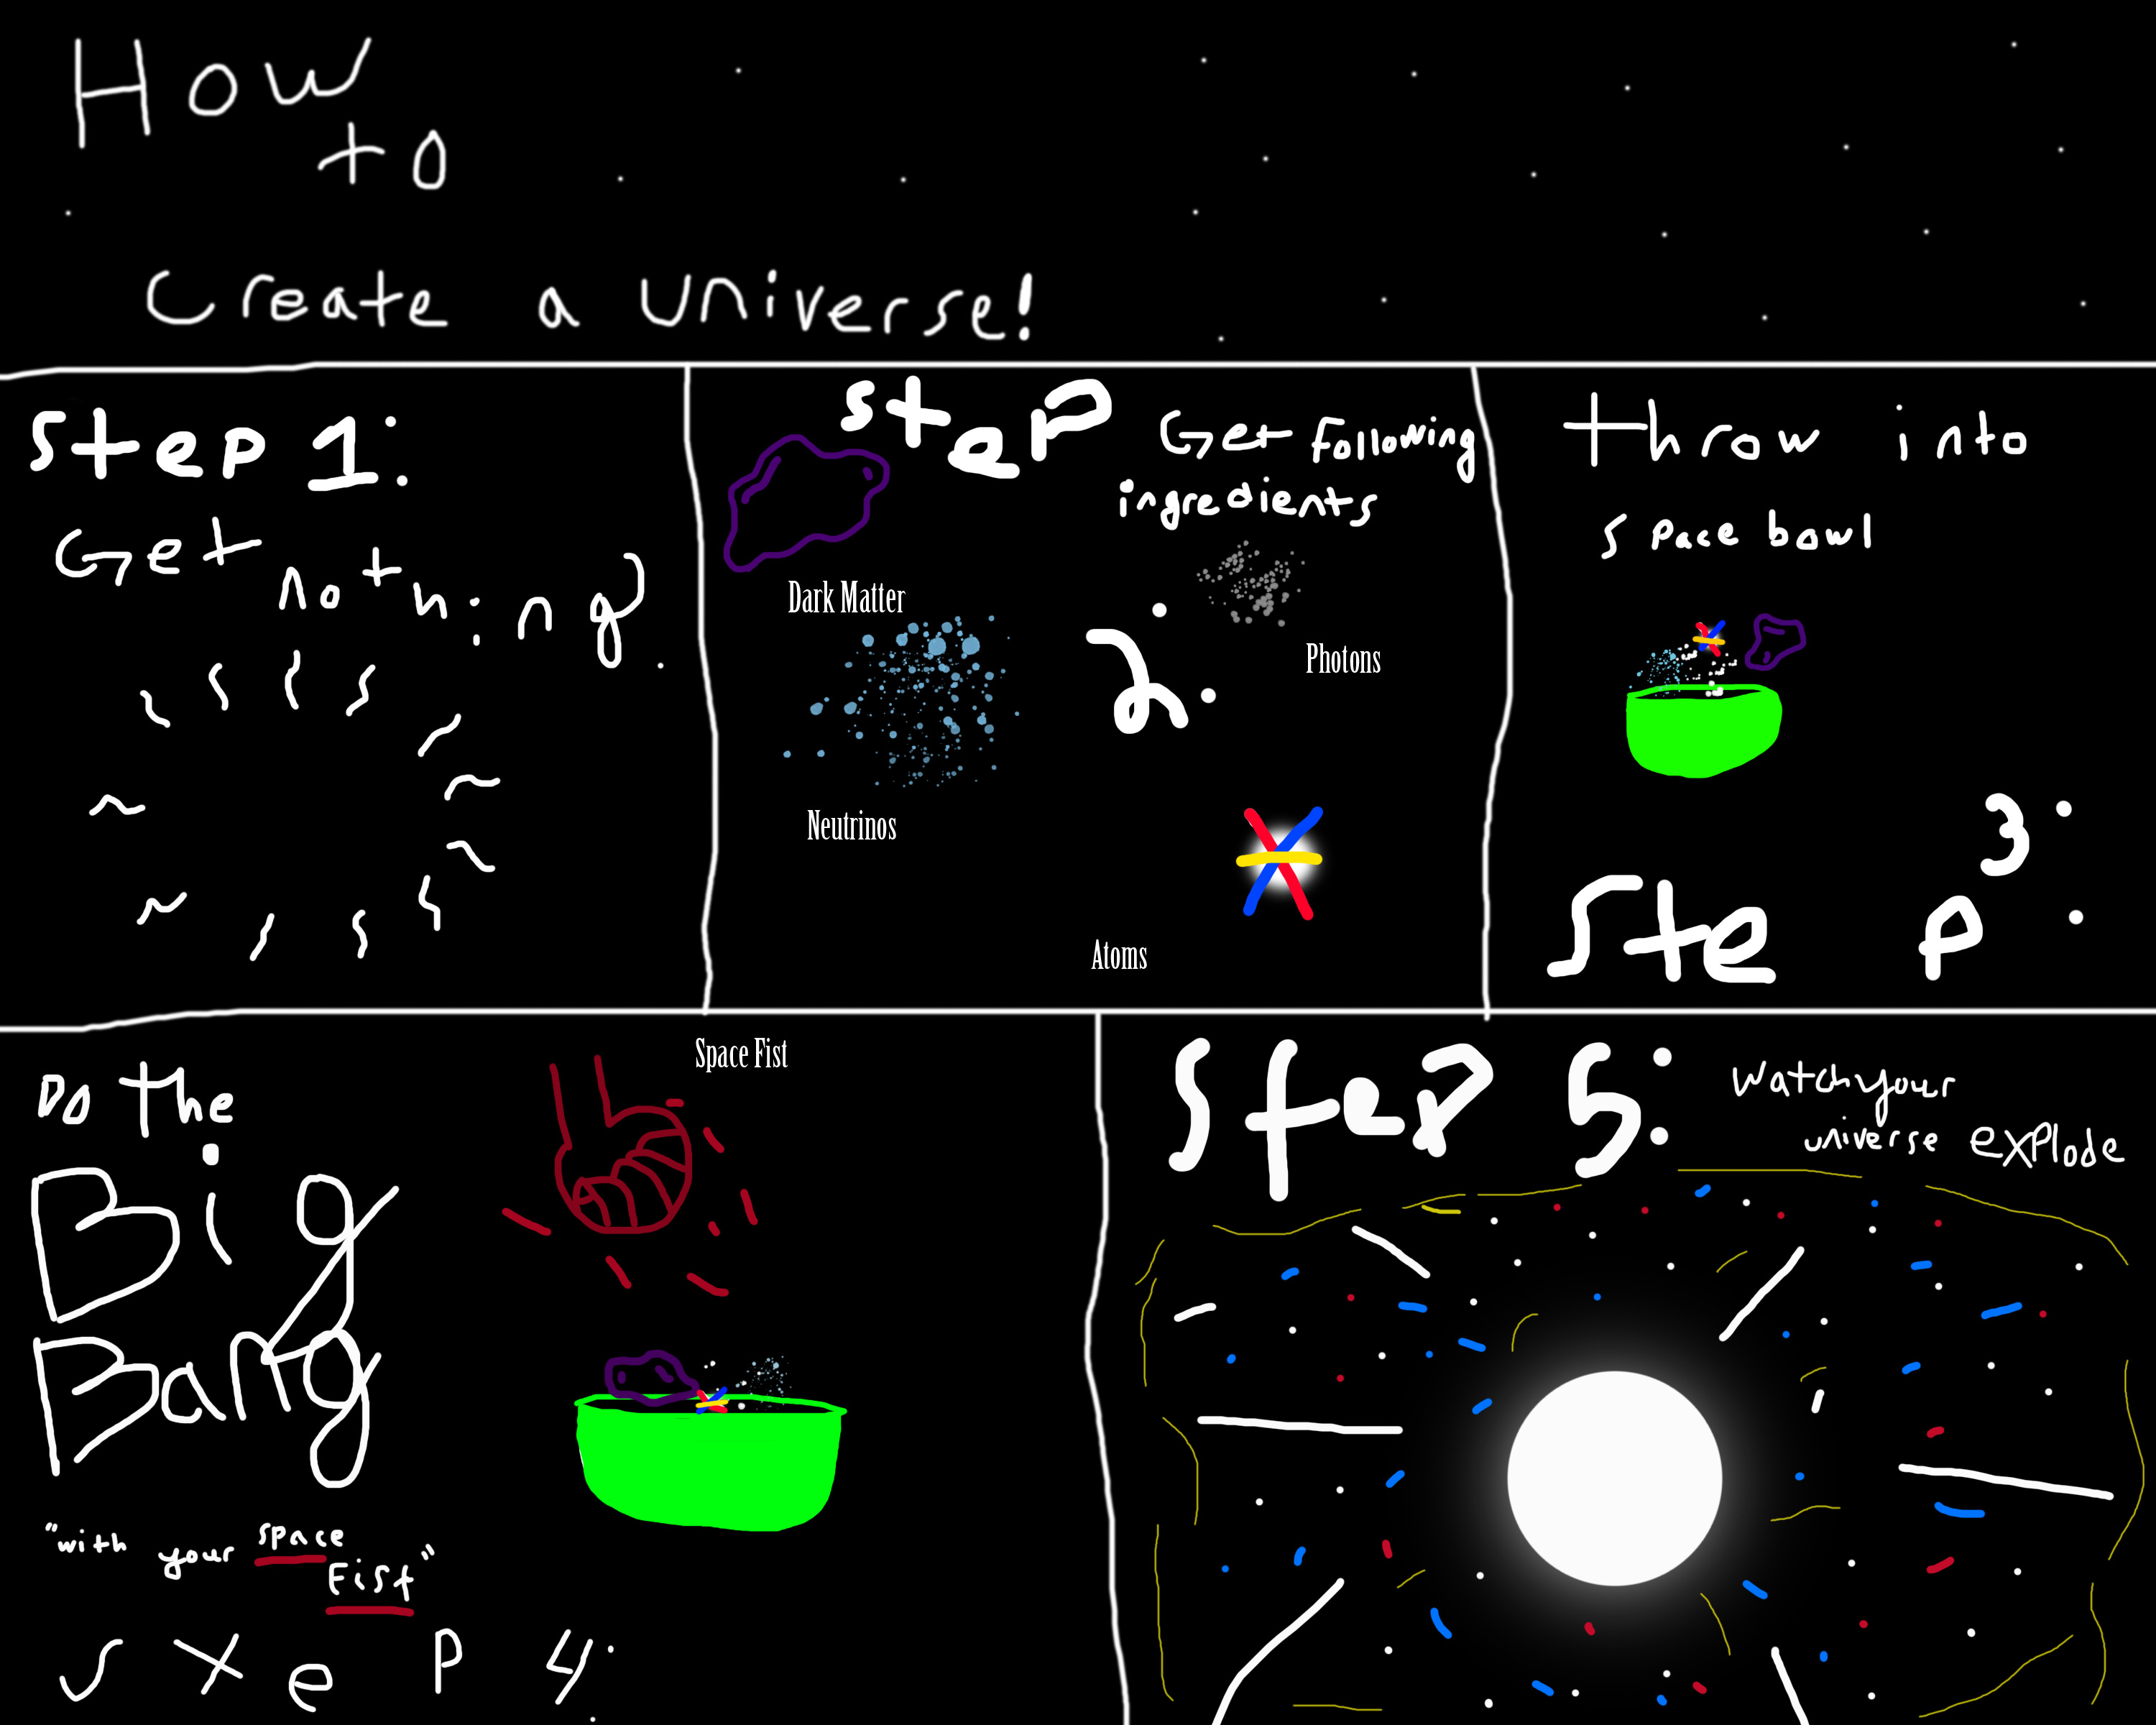 How
to
Create a universe!
Step 1:
Get nothing.
Step
2:
Get following
ingredients
Dark Matter
Photons
Neutrinos
Atoms
throw into
space bowl
3:
Step:
Do the
Big
Bang
"with your space
Fist"
Step 4:
Space Fist
Step 5:
Watch your
universe explode